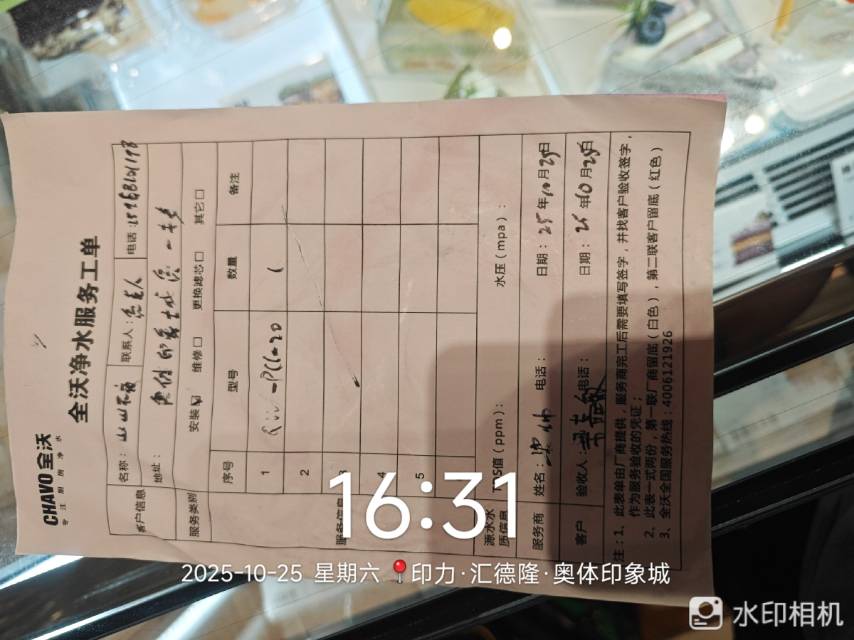 CHAVO全沃
专注厨房净水
全沃净水服务工单
客户信息
名称:
联系人:
电话:
地址:
服务类别
安装
维修□
更换滤芯□
其它□
服务信息
序号
型号
数量
备注
1
1
2
3
4
5
源水水质信息
TDS值(ppm):
水压(mpa):
服务商
姓名:
电话:
日期:25年10月25日
客户
验收人:
电话:
日期:25年10月25日
注:1、此表单由厂商提供,服务商完工后需要填写签字,并找客户验收签字,
作为服务验收的凭证;
2、此表一式两份,第一联厂商留底(白色),第二联客户留底(红色)
3、全沃全国服务热线:4006121926
16:31
2025-10-25 星期六 印力·汇德隆·奥体印象城
水印相机